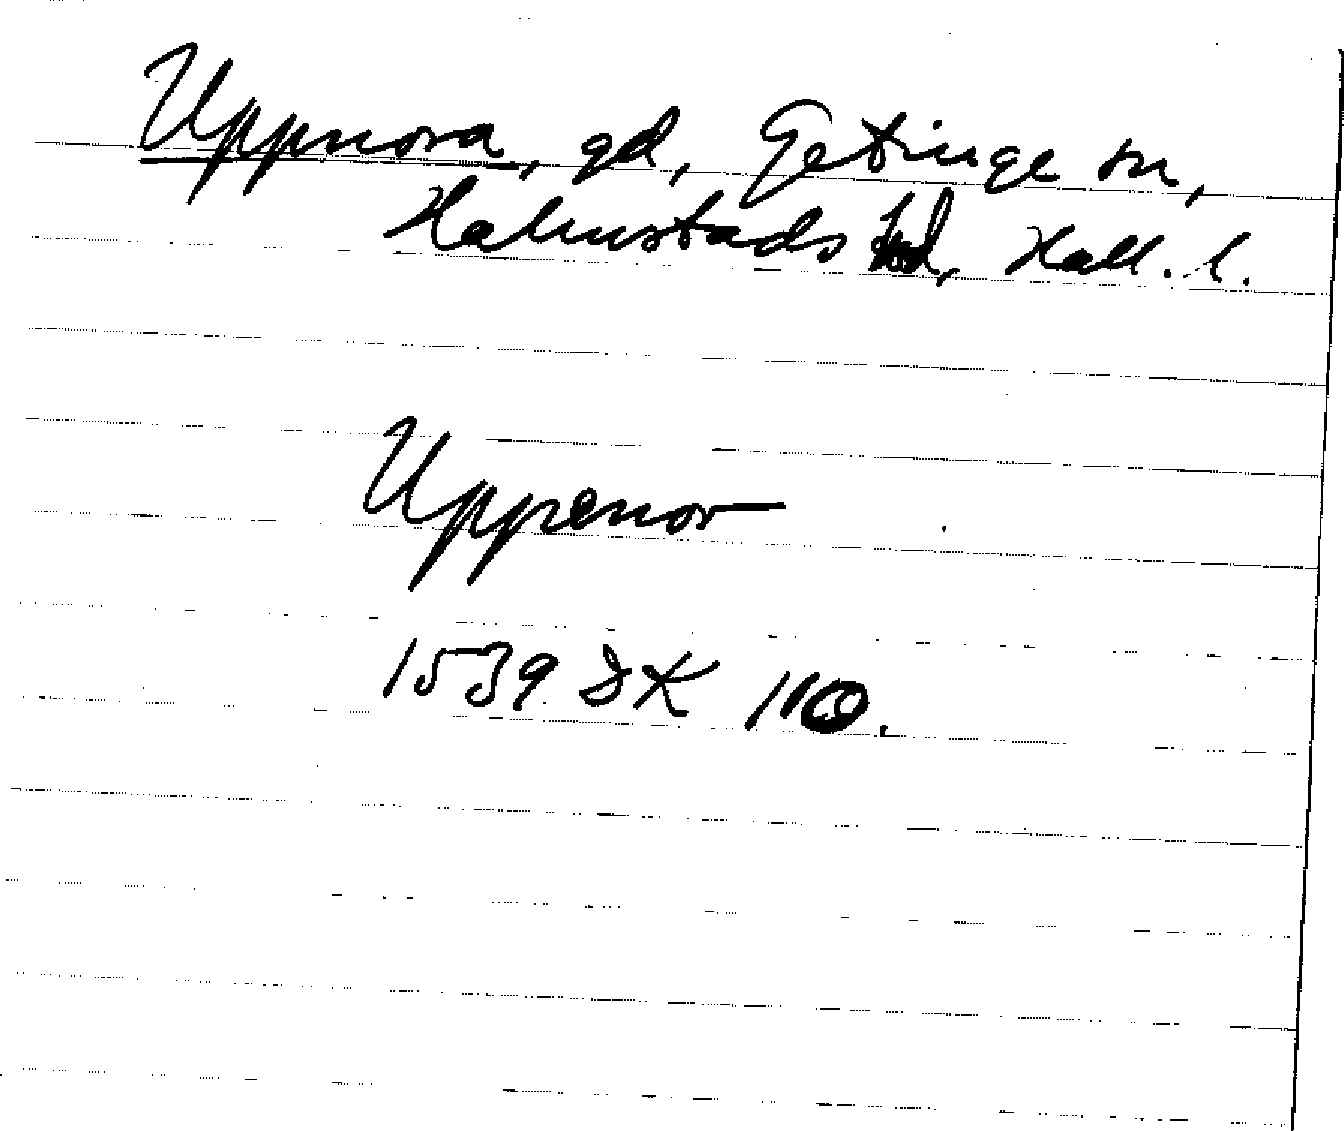 Uppnora, gd, Getinge sn,
Halmstads hd, Hall. l.
Uppenor
1539 DK 110.